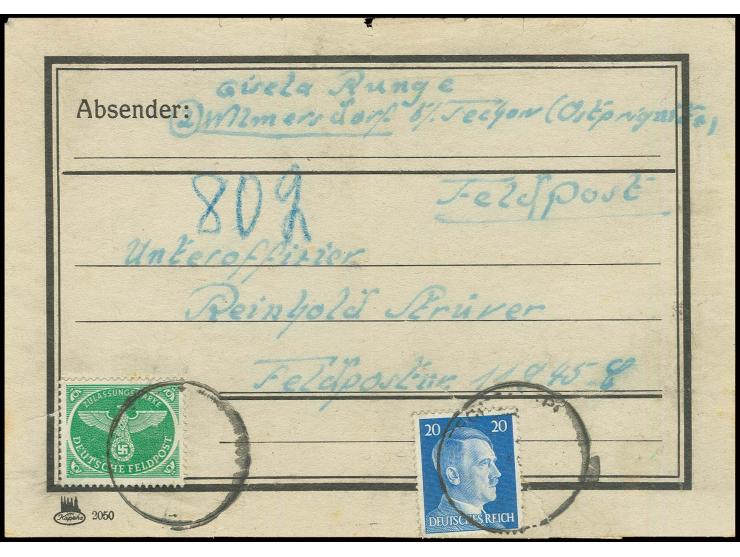 Gisela Runge
Absender: (2) Wilmersdorf b/. Techow (Ostprignitz)
80 g
Feldpost
Unteroffizier
Reinhold Strüver
Feldpostnr. 11945 E
ZULASSUNGSMARKE
DEUTSCHE FELDPOST
20 20
DEUTSCHES REICH
2050